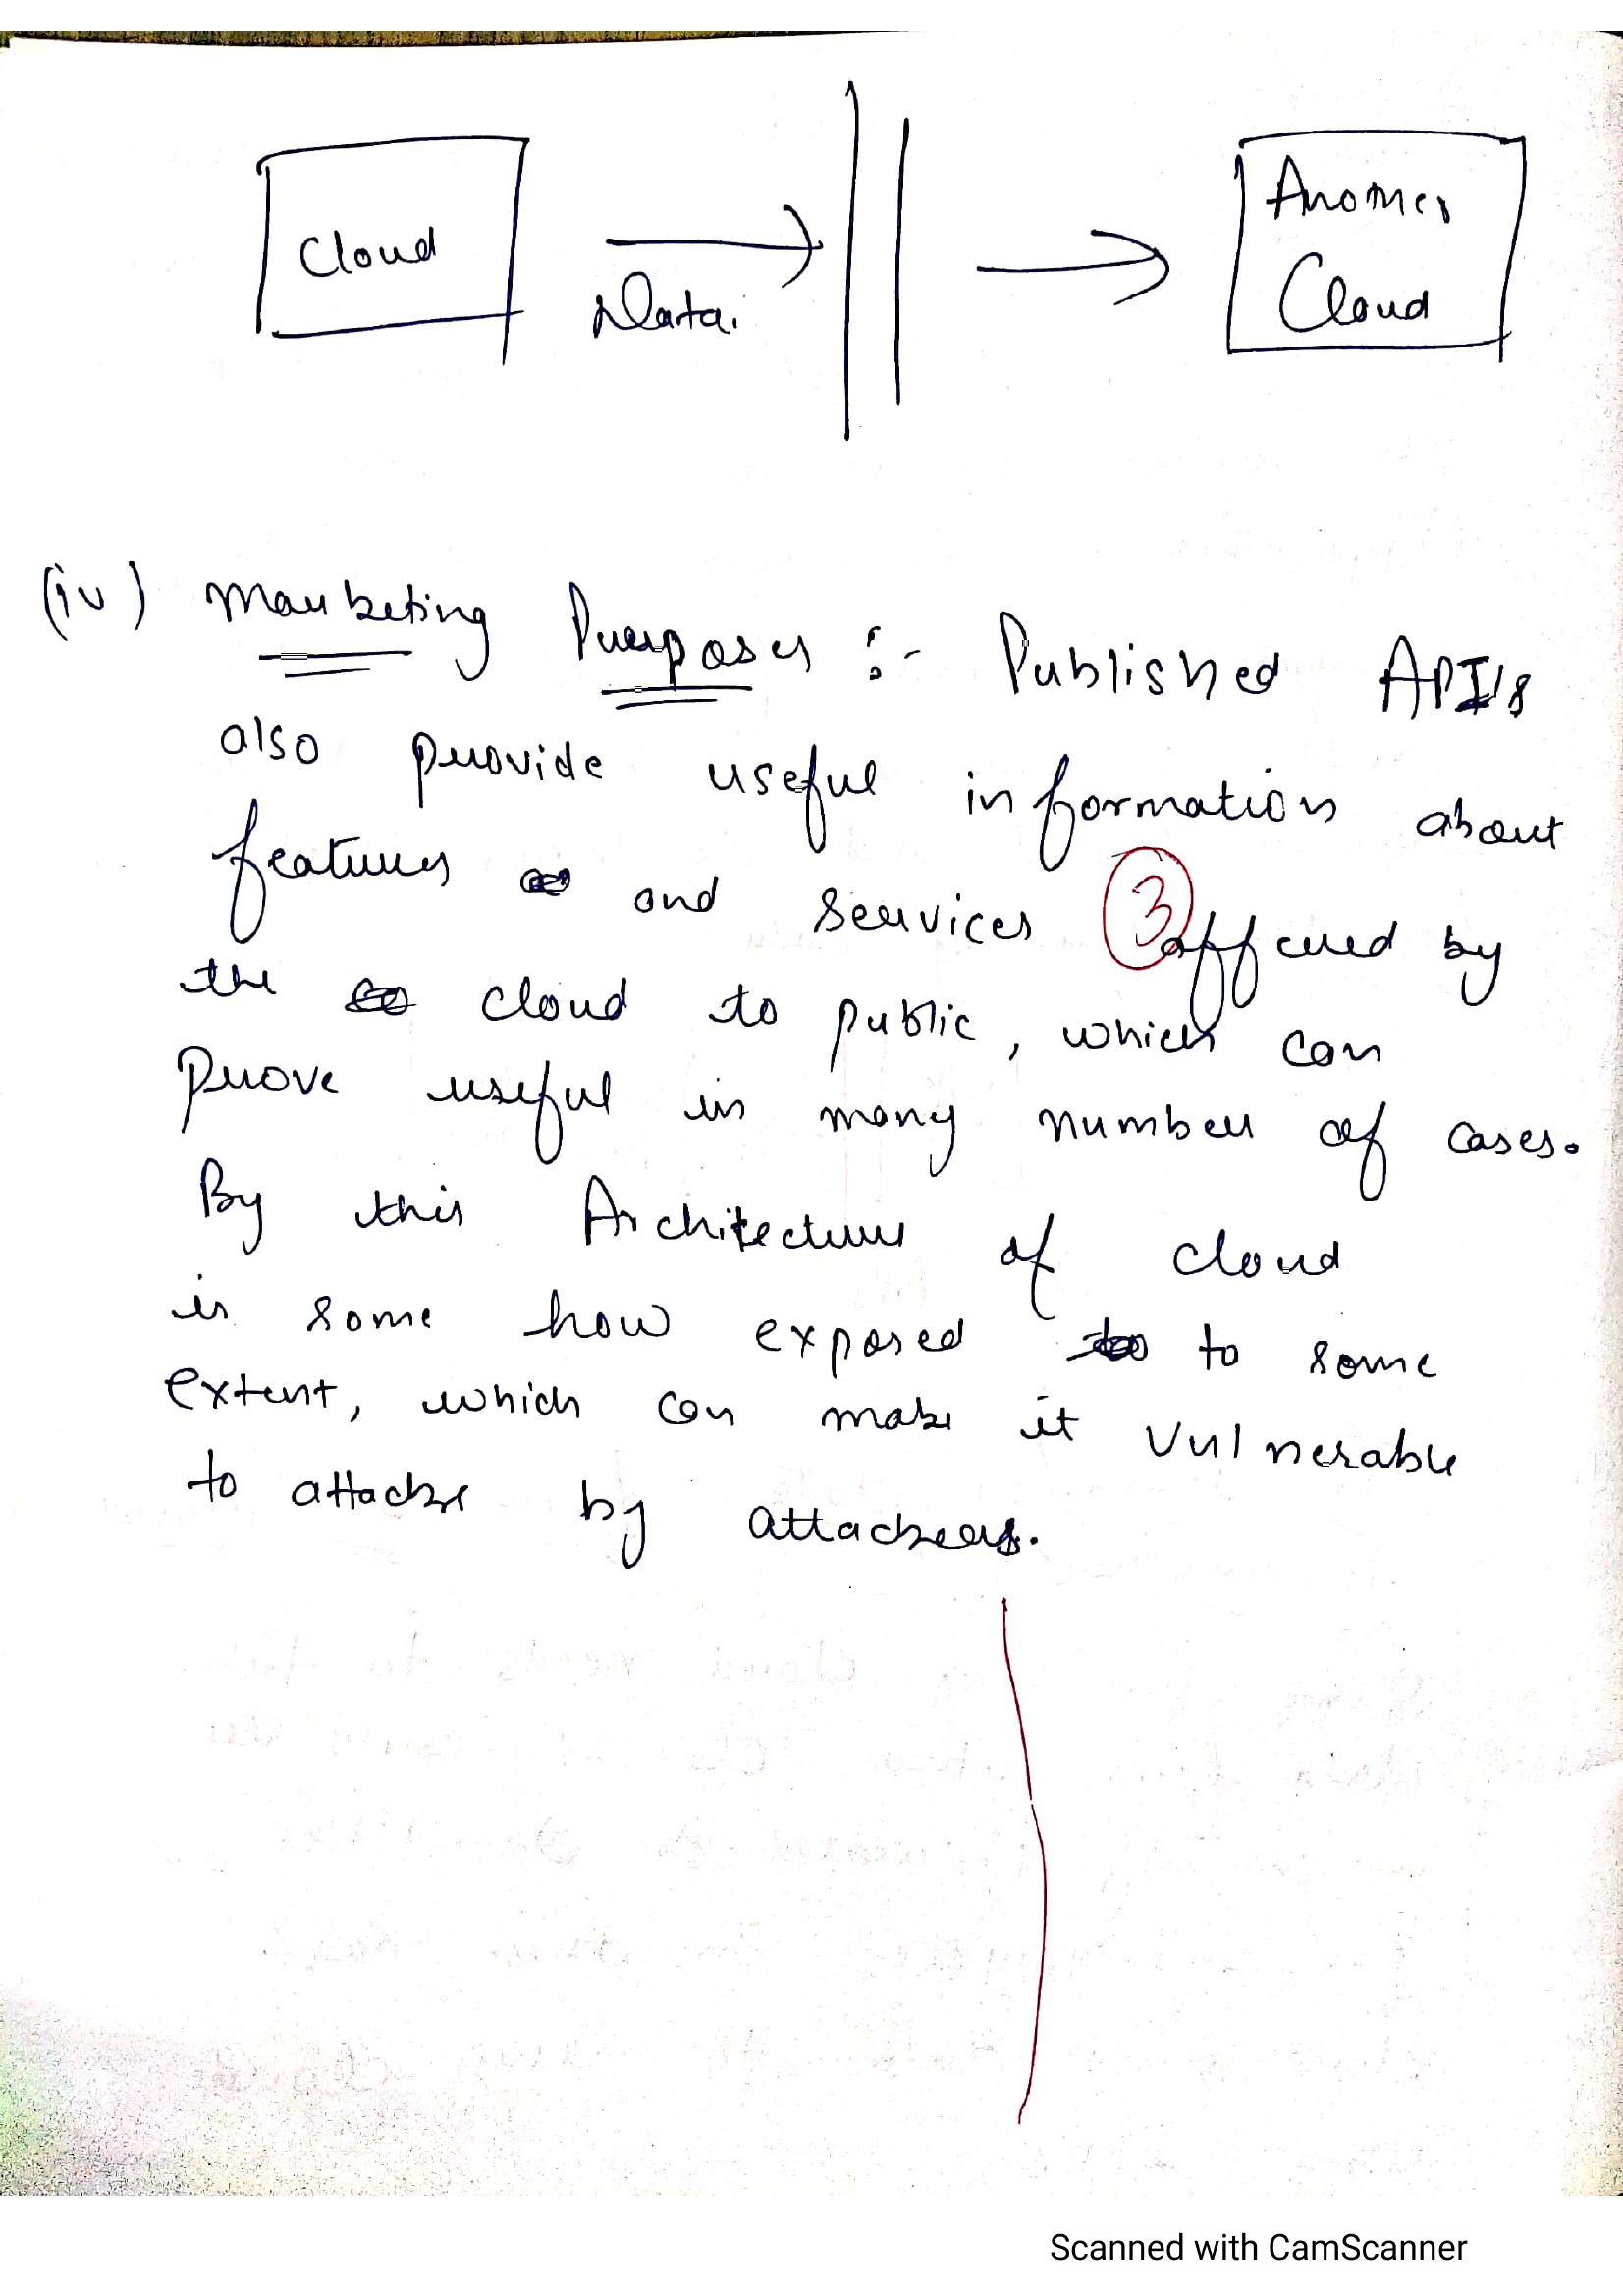 Cloud
Data.
Another
Cloud
(iv) Marketing Purposes :- Published API's
also provide useful information about
features and services offered by
3
the cloud to public, which can
prove useful in many number of cases.
By this Architecture of cloud
is some how exposed to some
extent, which can make it vulnerable
to attacks by attackers.
Scanned with CamScanner